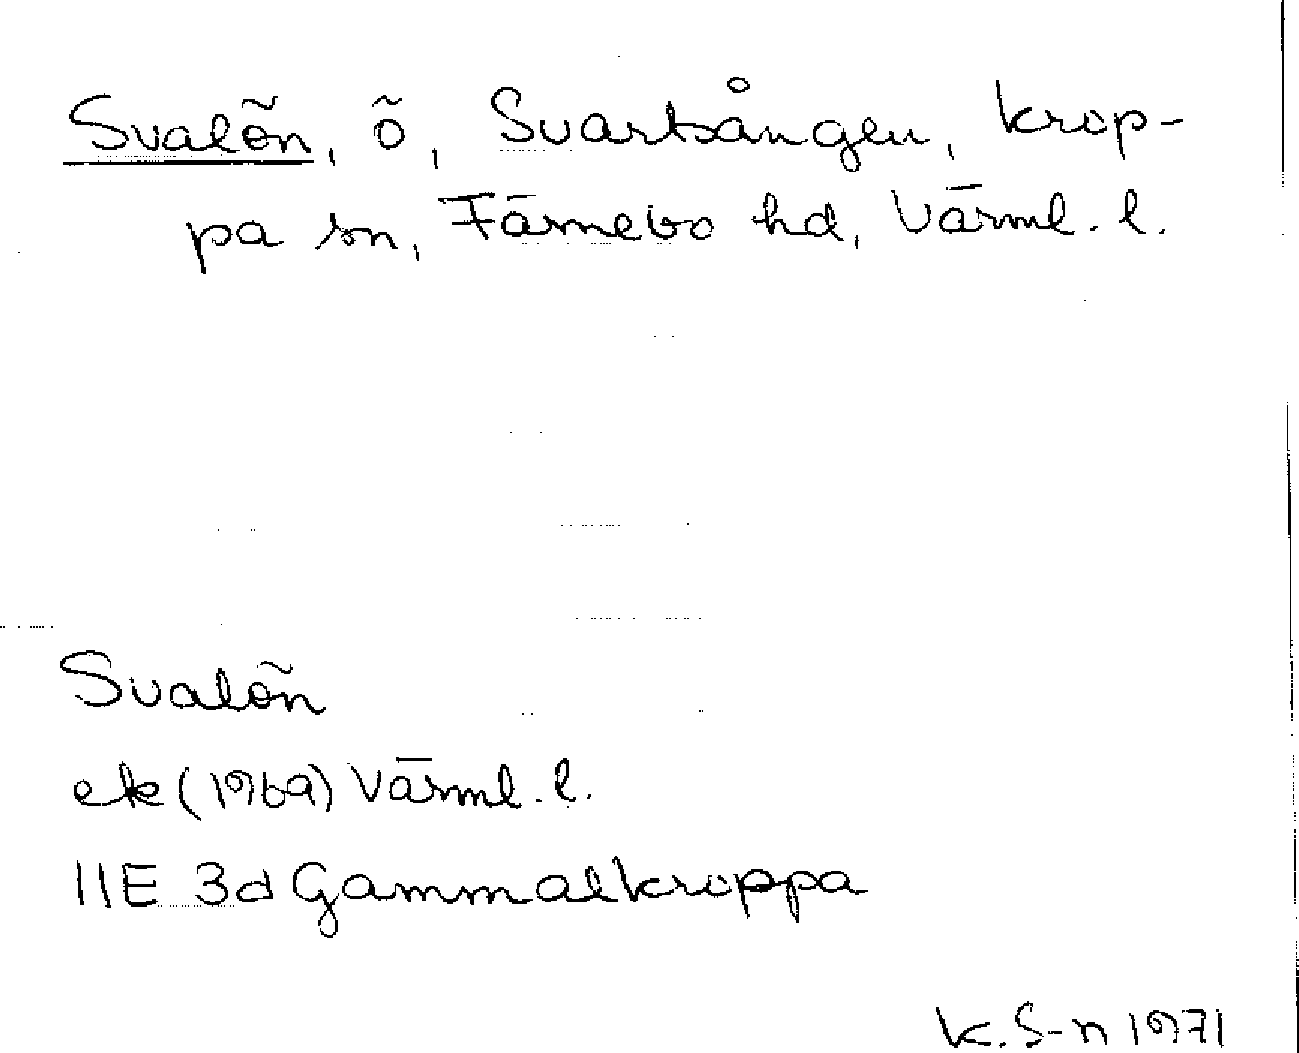 Svalön, ö, Svartsången, Krop-
pa sn, Färnebo hd, Värml. l.
Svalön
ek (1969) Värml. l.
11E 3d Gammalkroppa
K. S-n 1971